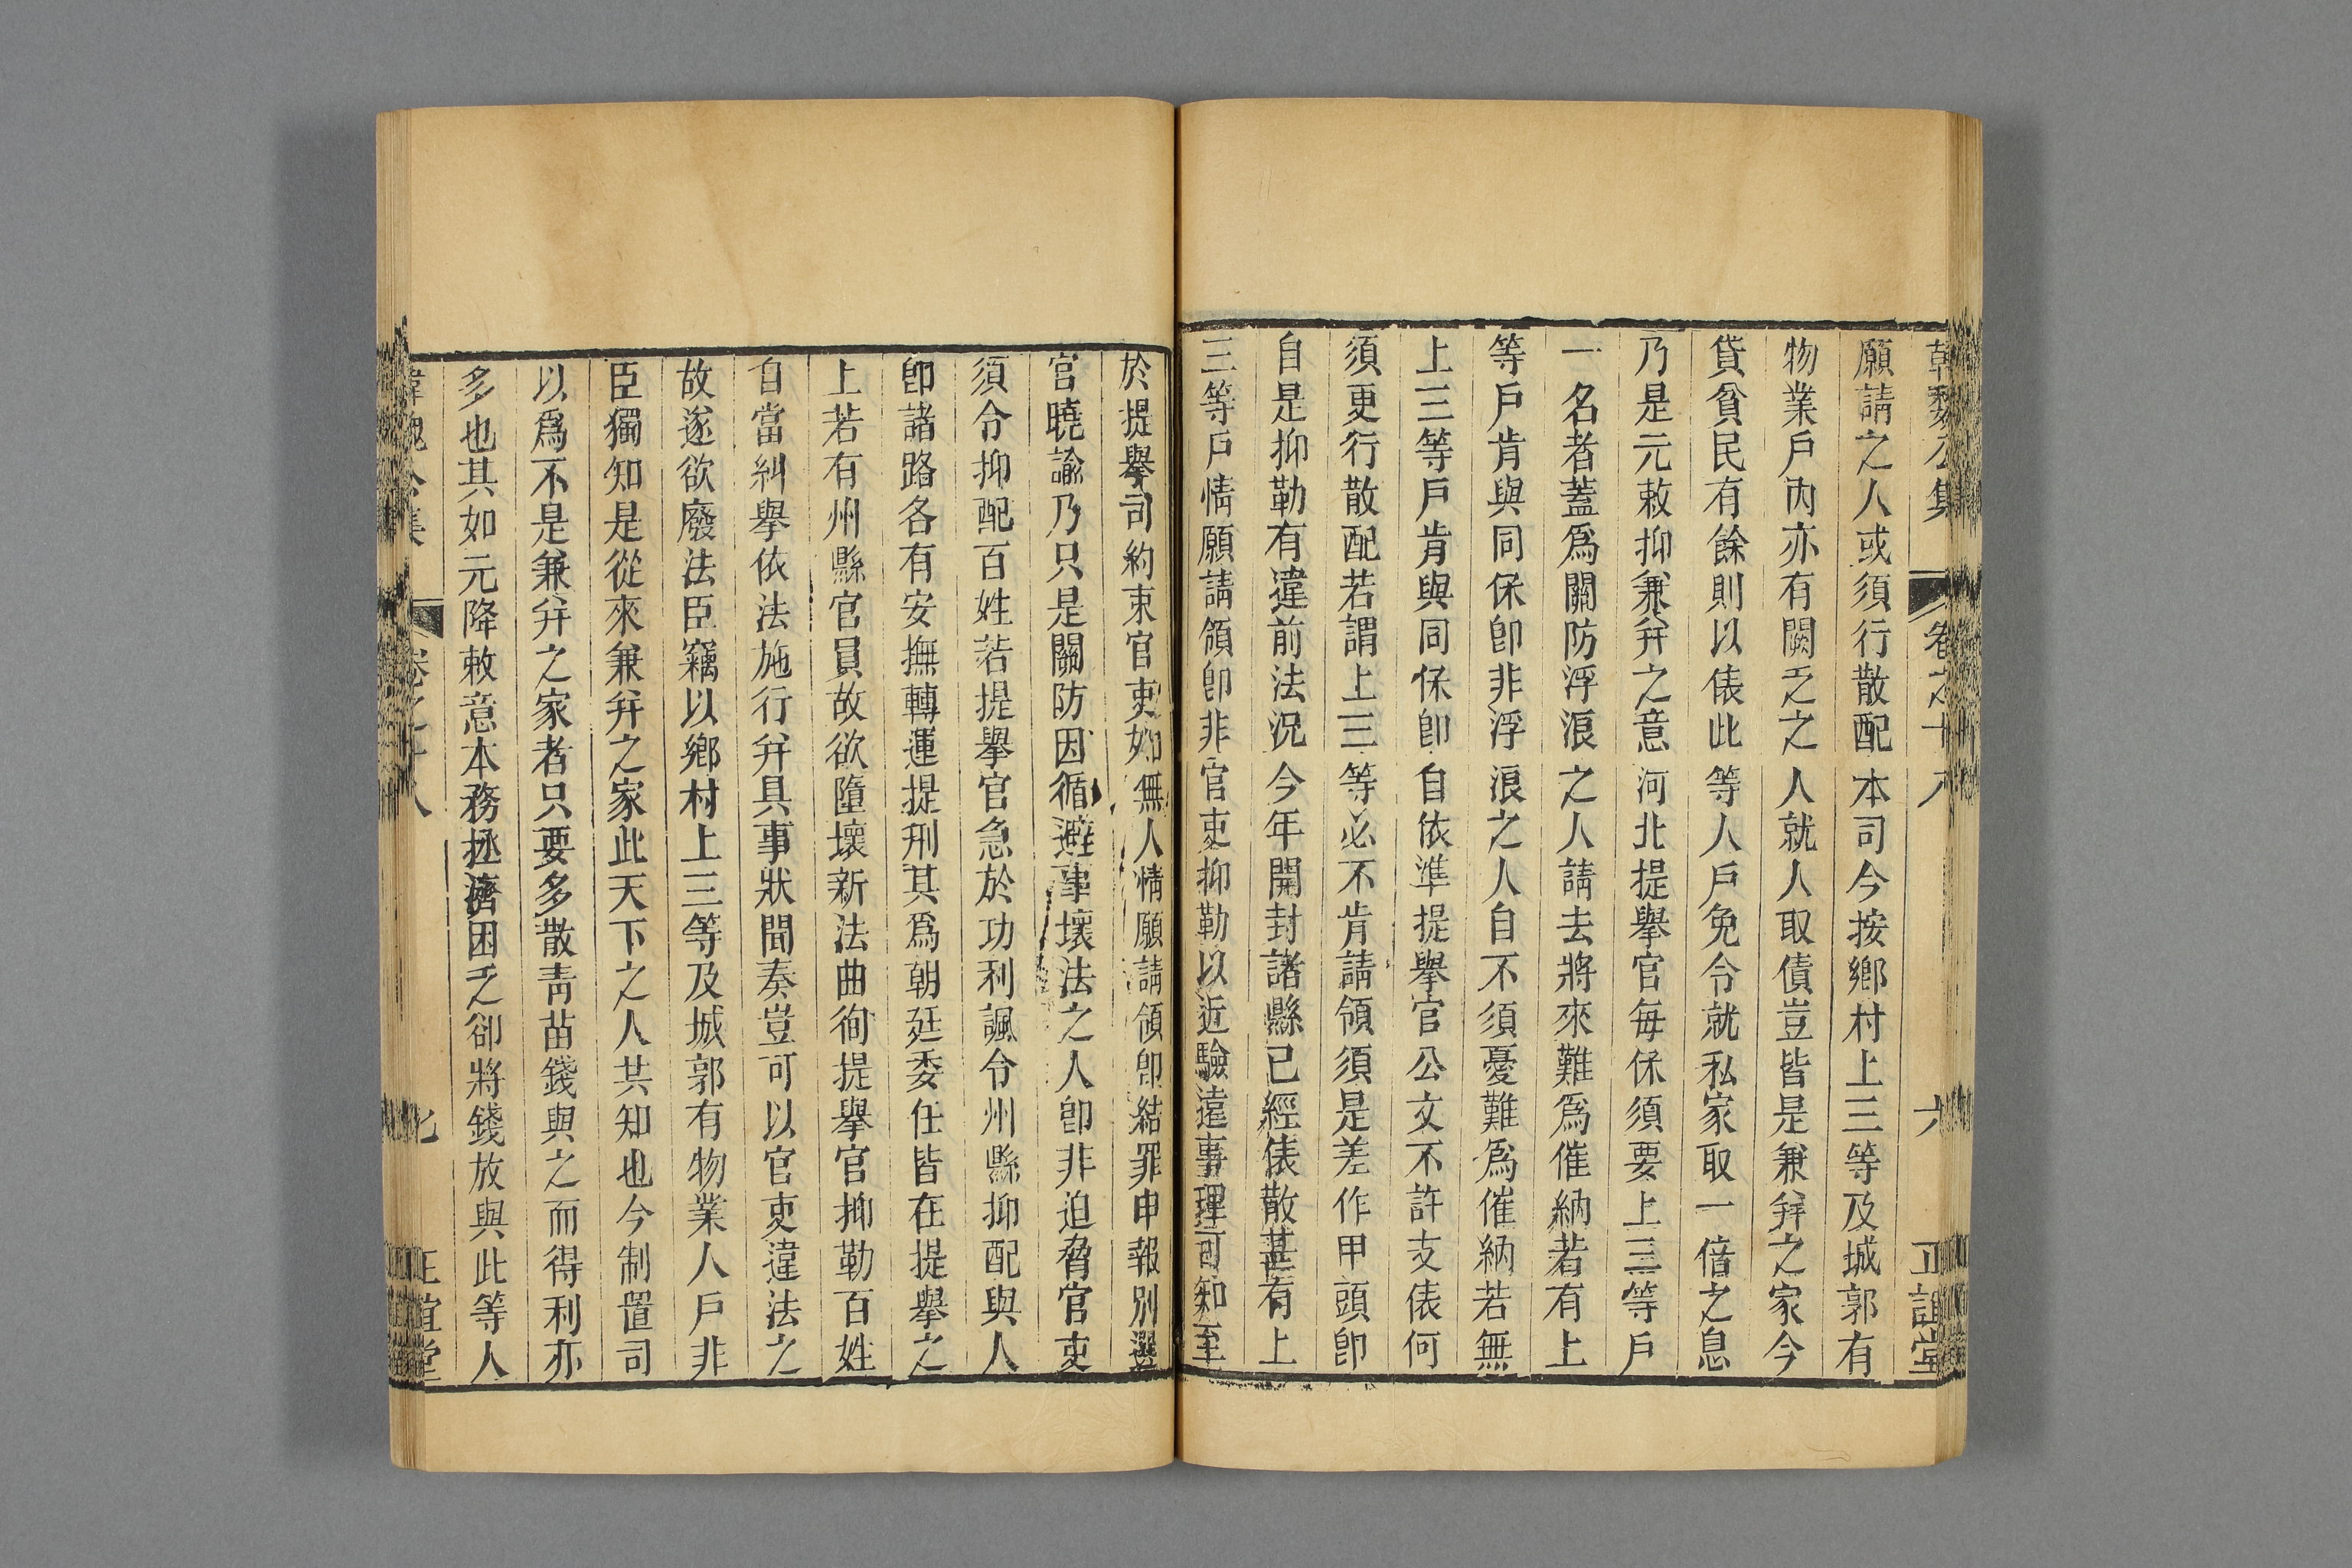 韓魏公集 卷之十八 六 正誼堂
願請之人或須行散配本司今按鄉村上三等及城郭有
物業戶內亦有闕乏之人就人取債豈皆是兼弁之家今
貸貧民有餘則以俵此等人戶免令就私家取一偣之息
乃是元敕抑兼弁之意河北提舉官每保須要上三等戶
一名者蓋爲關防浮浪之人請去將來難爲催納若有上
等戶肯與同保卽非浮浪之人自不須憂難爲催納若無
上三等戶肯與同保卽自依準提舉官公文不許支俵何
須更行散配若謂上三等必不肯請領須是差作甲頭卽
自是抑勒有違前法況今年開封諸縣已經俵散甚有上
三等戶情願請領卽非官吏抑勒以近驗遠事理可知至
於提舉司約束官吏如無人情願請領卽結罪申報別選
官曉諭乃只是關防因循避事壞法之人卽非迫脅官吏
須令抑配百姓若提舉官急於功利諷令州縣抑配與人
卽諸路各有安撫轉運提刑其爲朝廷委任皆在提舉之
上若有州縣官員故欲隳壞新法曲徇提舉官抑勒百姓
自當糾舉依法施行弁具事狀聞奏豈可以官吏違法之
故遂欲廢法臣竊以鄉村上三等及城郭有物業人戶非
臣獨知是從來兼弁之家此天下之人共知也今制置司
以爲不是兼弁之家者只要多散靑苗錢與之而得利亦
多也其如元降敕意本務拯濟困乏卻將錢放與此等人
韓魏公集 卷之十八 正誼堂